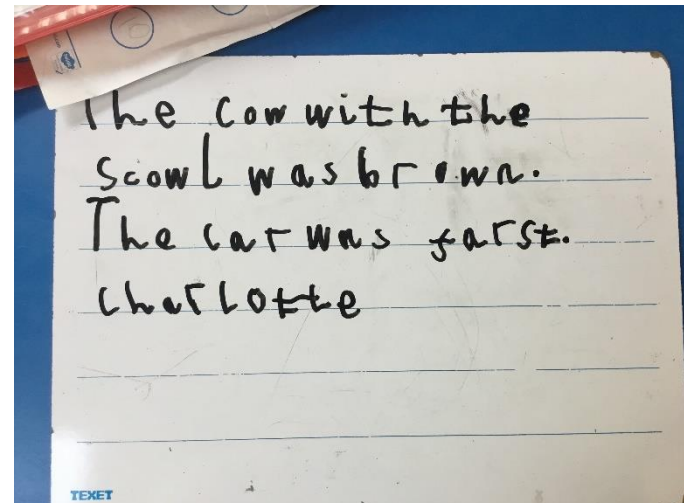 The cow with the
scowl was brown.
The car was farst.
Charlotte
TEXET